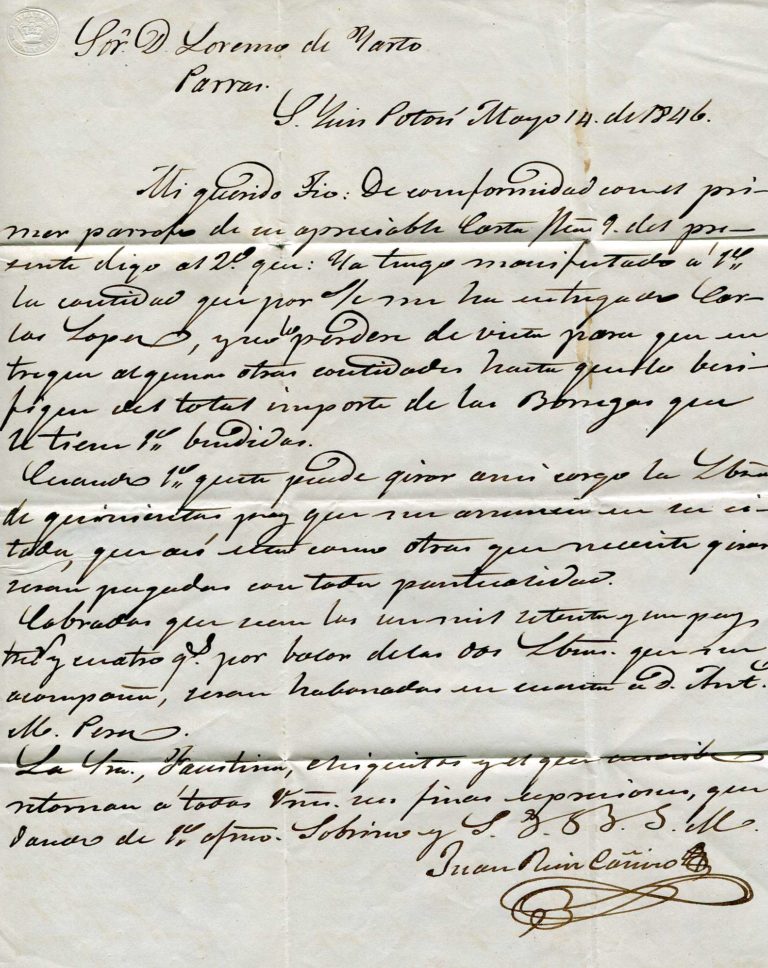 Sõr. D. Lorenzo de Yarto
Parras.
S. Luis Potosí Mayo 14. de 1846.
Mi querido Tio: De comformidad con el pri-
mer parrafo de su apreciable Carta fha. 9. del pre-
sente digo al 2º. que: Ya tengo manifestado á V.
la cantidad que por S/c me ha entregado Car-
los Lopez, y no lo perdere de vista para que en
tregue algunas otras cantidades hasta que lo beri-
fique del total importe de las Borregas que
le tiene V. bendidas.
Cuando V. guste puede girar a mi cargo la Lbza
de quinientos ps. que me anuncia en su ci-
tada, que asi esta como otras que necesite girar
seran pagadas con toda puntualidad.
Cobradas que sean las un mil setenta y un ps.
tres rs. y cuatro gs. por balor de las dos Lbzas. que me
acompaña, seran habonadas en cuenta á D. Ant.
M.
La Sra., Faustina, chiquitos y el que escribe
retornan á todos Vms. sus finas espresiones, que
dando de V. afmo. Sobrino y S. S. Q. B. S. M.
Juan Ruiz Cañizo